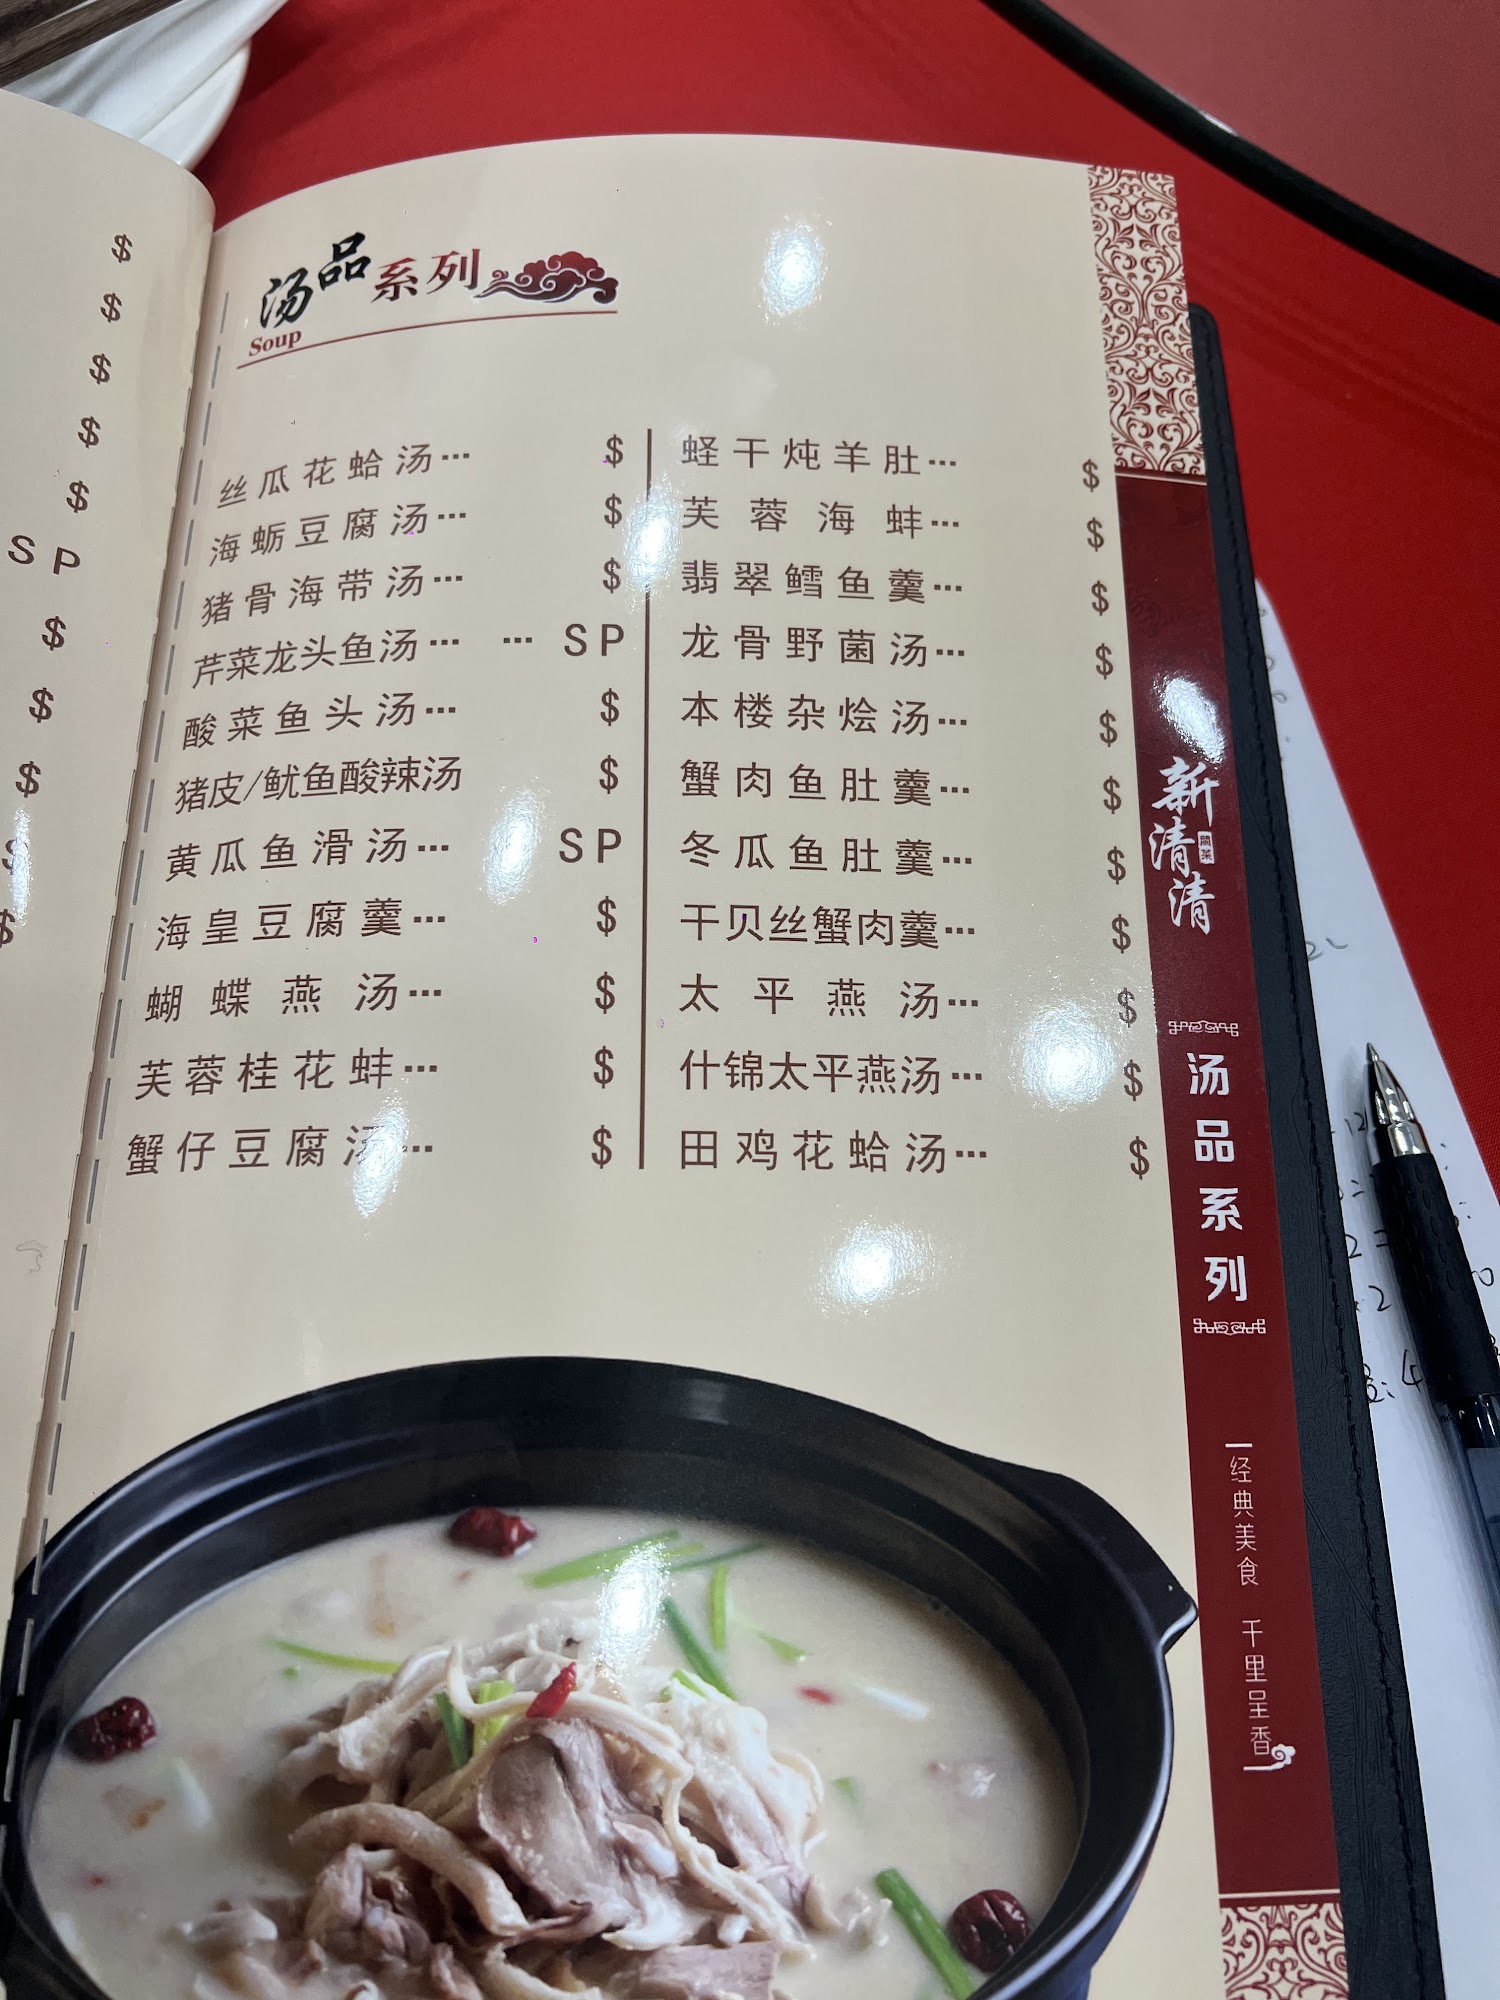 $
$
$
$
$
SP
$
$
$
$
$
汤品系列
Soup
丝瓜花蛤汤… $
海蛎豆腐汤… $
猪骨海带汤… $
芹菜龙头鱼汤… … SP
酸菜鱼头汤… $
猪皮/鱿鱼酸辣汤 $
黄瓜鱼滑汤… SP
海皇豆腐羹… $
蝴蝶燕汤… $
芙蓉桂花蚌… $
蟹仔豆腐汤… $
蛏干炖羊肚… $
芙蓉海蚌… $
翡翠鳕鱼羹… $
龙骨野菌汤… $
本楼杂烩汤… $
蟹肉鱼肚羹… $
冬瓜鱼肚羹… $
干贝丝蟹肉羹… $
太平燕汤… $
什锦太平燕汤… $
田鸡花蛤汤… $
新清清
汤品系列
经典美食 千里呈香